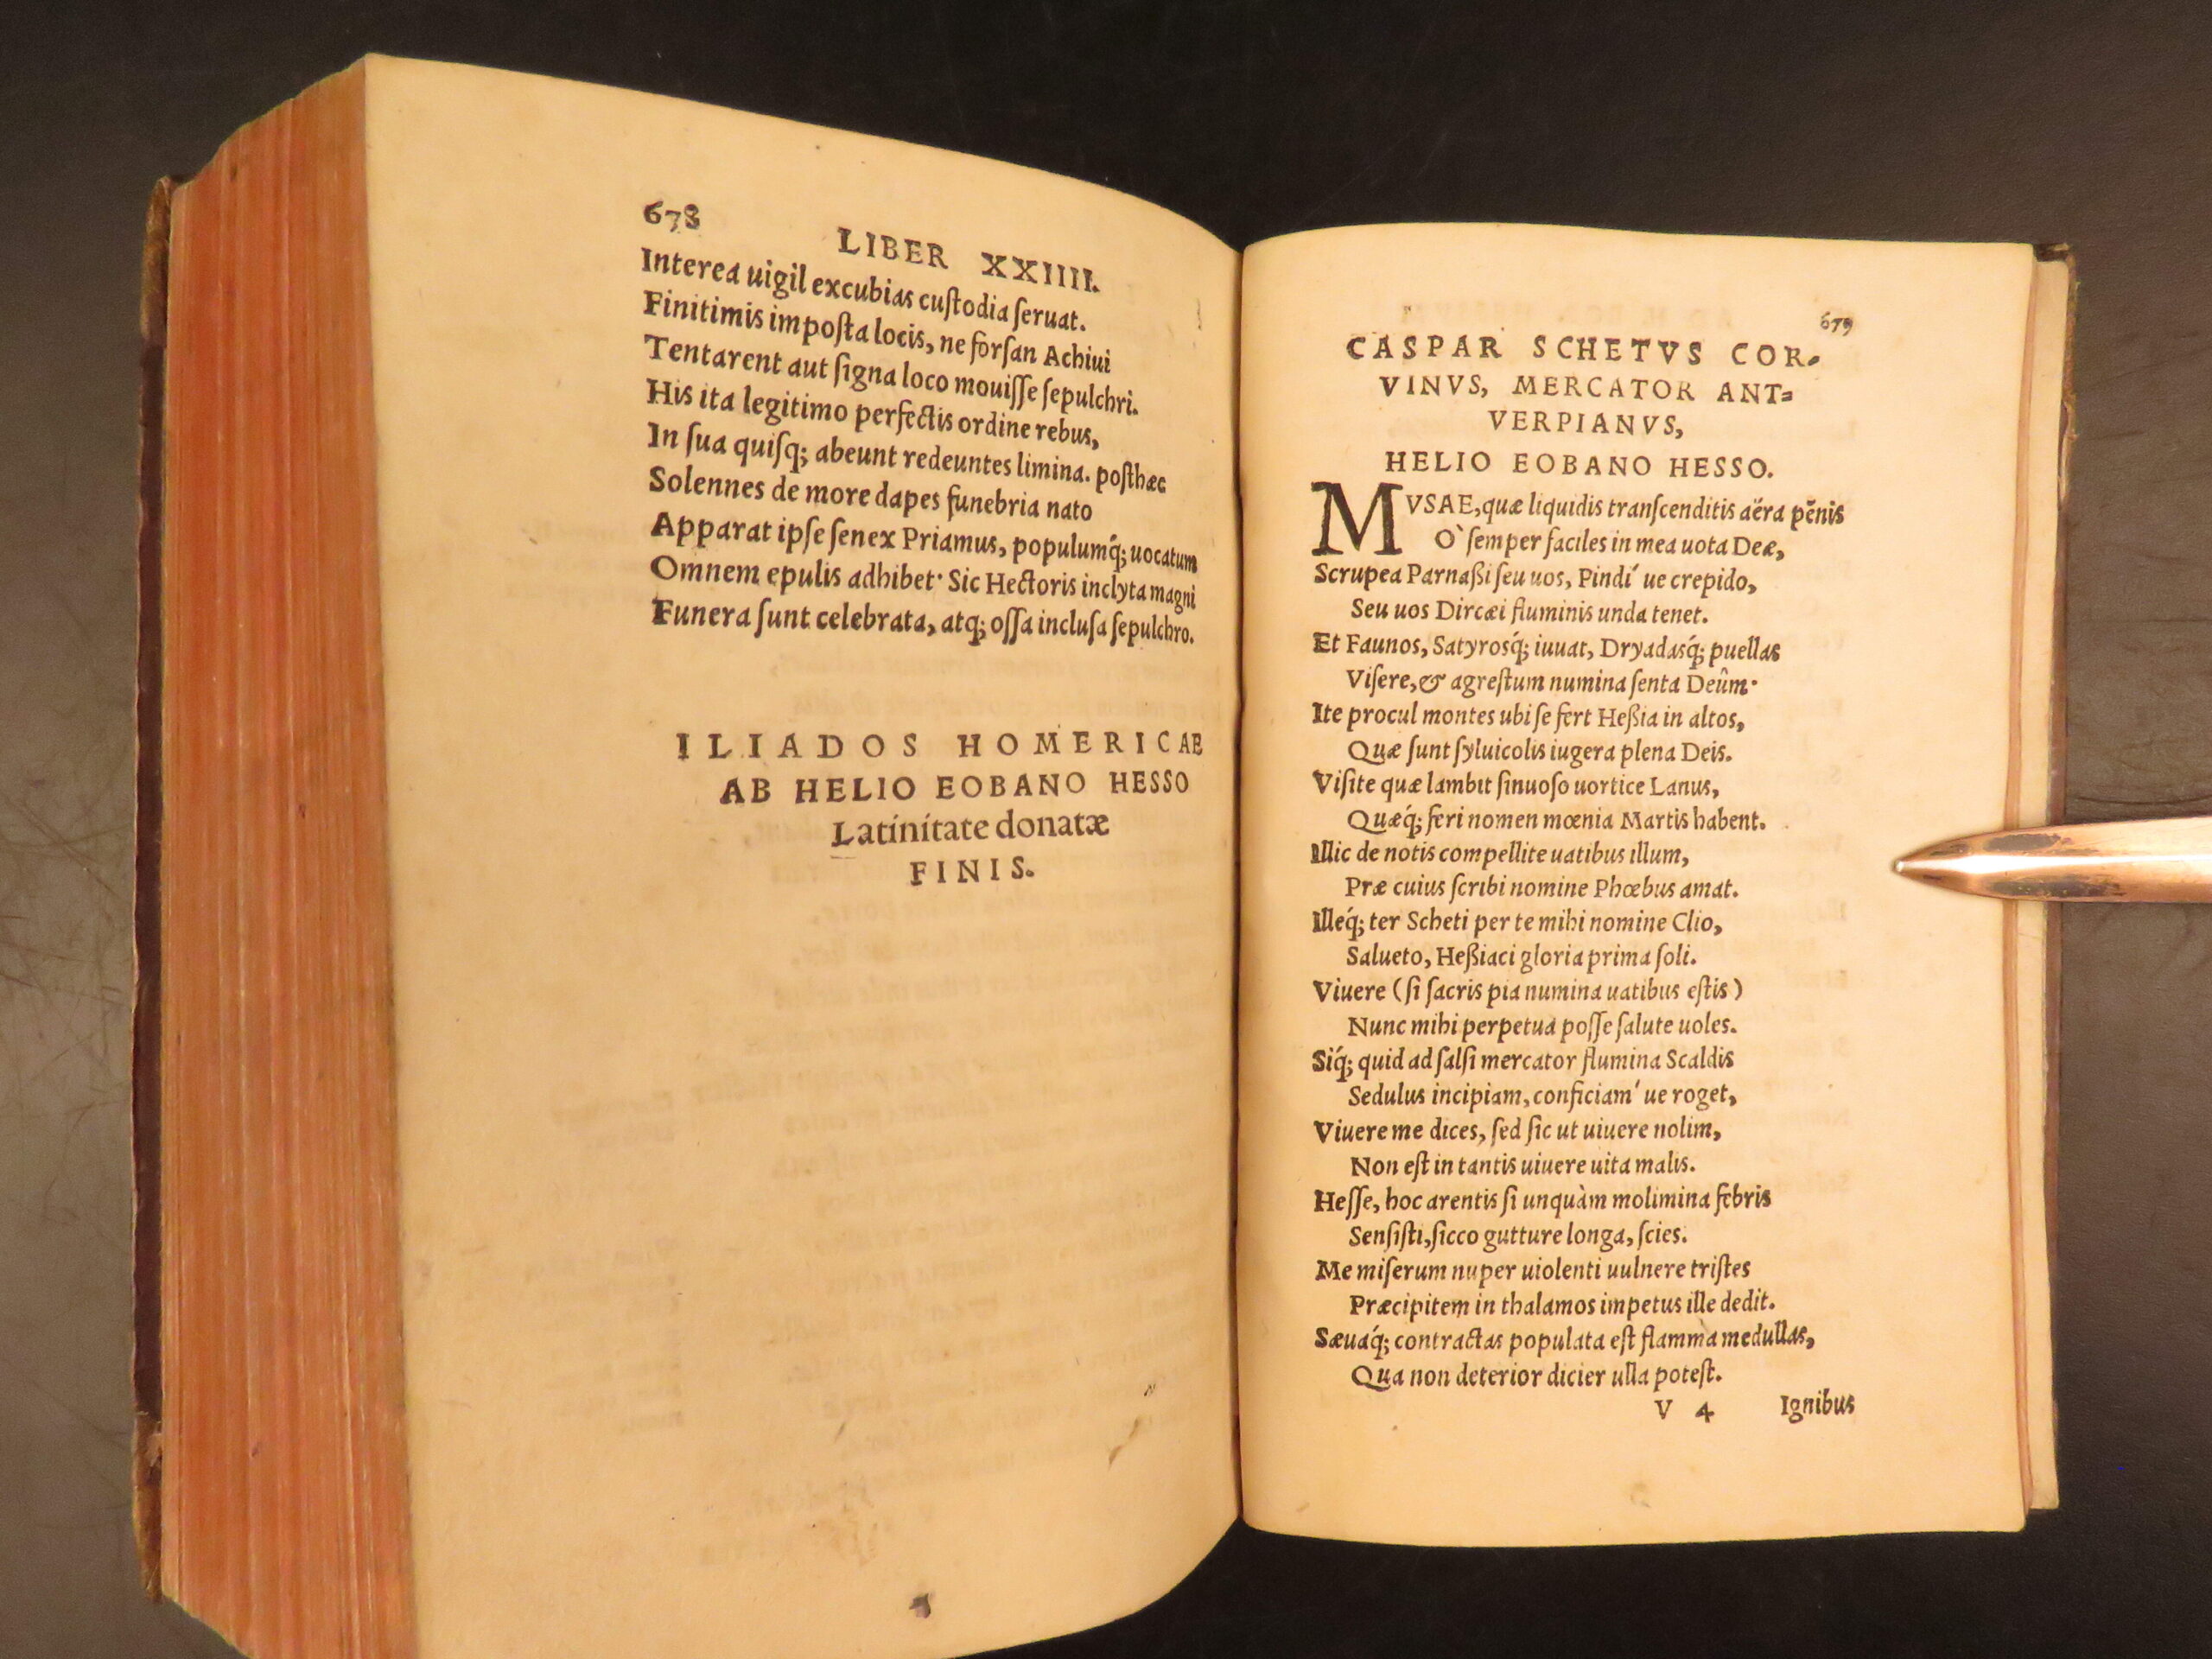 678
LIBER XXIIII.
Interea uigil excubias cuſtodia ſeruat.
Finitimis impoſta locis, ne forſan Achiui
Tentarent aut ſigna loco mouiſſe ſepulchri.
His ita legitimo perfectis ordine rebus,
In ſua quiſq; abeunt redeuntes limina. poſthæc
Solennes de more dapes funebria nato
Apparat ipſe ſenex Priamus, populumq́; uocatum
Omnem epulis adhibet· Sic Hectoris inclyta magni
Funera ſunt celebrata, atq; oſſa incluſa ſepulchro.
ILIADOS HOMERICAE
AB HELIO EOBANO HESSO
Latinitate donatæ
FINIS.
679
CASPAR SCHETVS COR-
VINVS, MERCATOR ANT=
VERPIANVS,
HELIO EOBANO HESSO.
MVSAE, quæ liquidis tranſcenditis aëra pẽnis
O` ſemper faciles in mea uota Deæ,
Scrupea Parnaßi ſeu uos, Pindi´ ue crepido,
Seu uos Dircæi fluminis unda tenet.
Et Faunos, Satyrosq́; iuuat, Dryadasq́; puellas
Viſere, & agreſtum numina ſenta Deûm·
Ite procul montes ubi ſe fert Heßia in altos,
Quæ ſunt ſyluicolis iugera plena Deis.
Viſite quæ lambit ſinuoſo uortice Lanus,
Quæq́; feri nomen mœnia Martis habent.
Illic de notis compellite uatibus illum,
Præ cuius ſcribi nomine Phœbus amat.
Illeq́; ter Scheti per te mihi nomine Clio,
Salueto, Heßiaci gloria prima ſoli.
Viuere (ſi ſacris pia numina uatibus eſtis)
Nunc mihi perpetua poſſe ſalute uoles.
Siq́; quid ad ſalſi mercator flumina Scaldis
Sedulus incipiam, conficiam´ ue roget,
Viuere me dices, ſed ſic ut uiuere nolim,
Non eſt in tantis uiuere uita malis.
Heſſe, hoc arentis ſi unquàm molimina febris
Senſiſti, ſicco gutture longa, ſcies.
Me miſerum nuper uiolenti uulnere triſtes
Præcipitem in thalamos impetus ille dedit.
Sæuaq́; contractas populata eſt flamma medullas,
Qua non deterior dicier ulla poteſt.
V 4 Ignibus